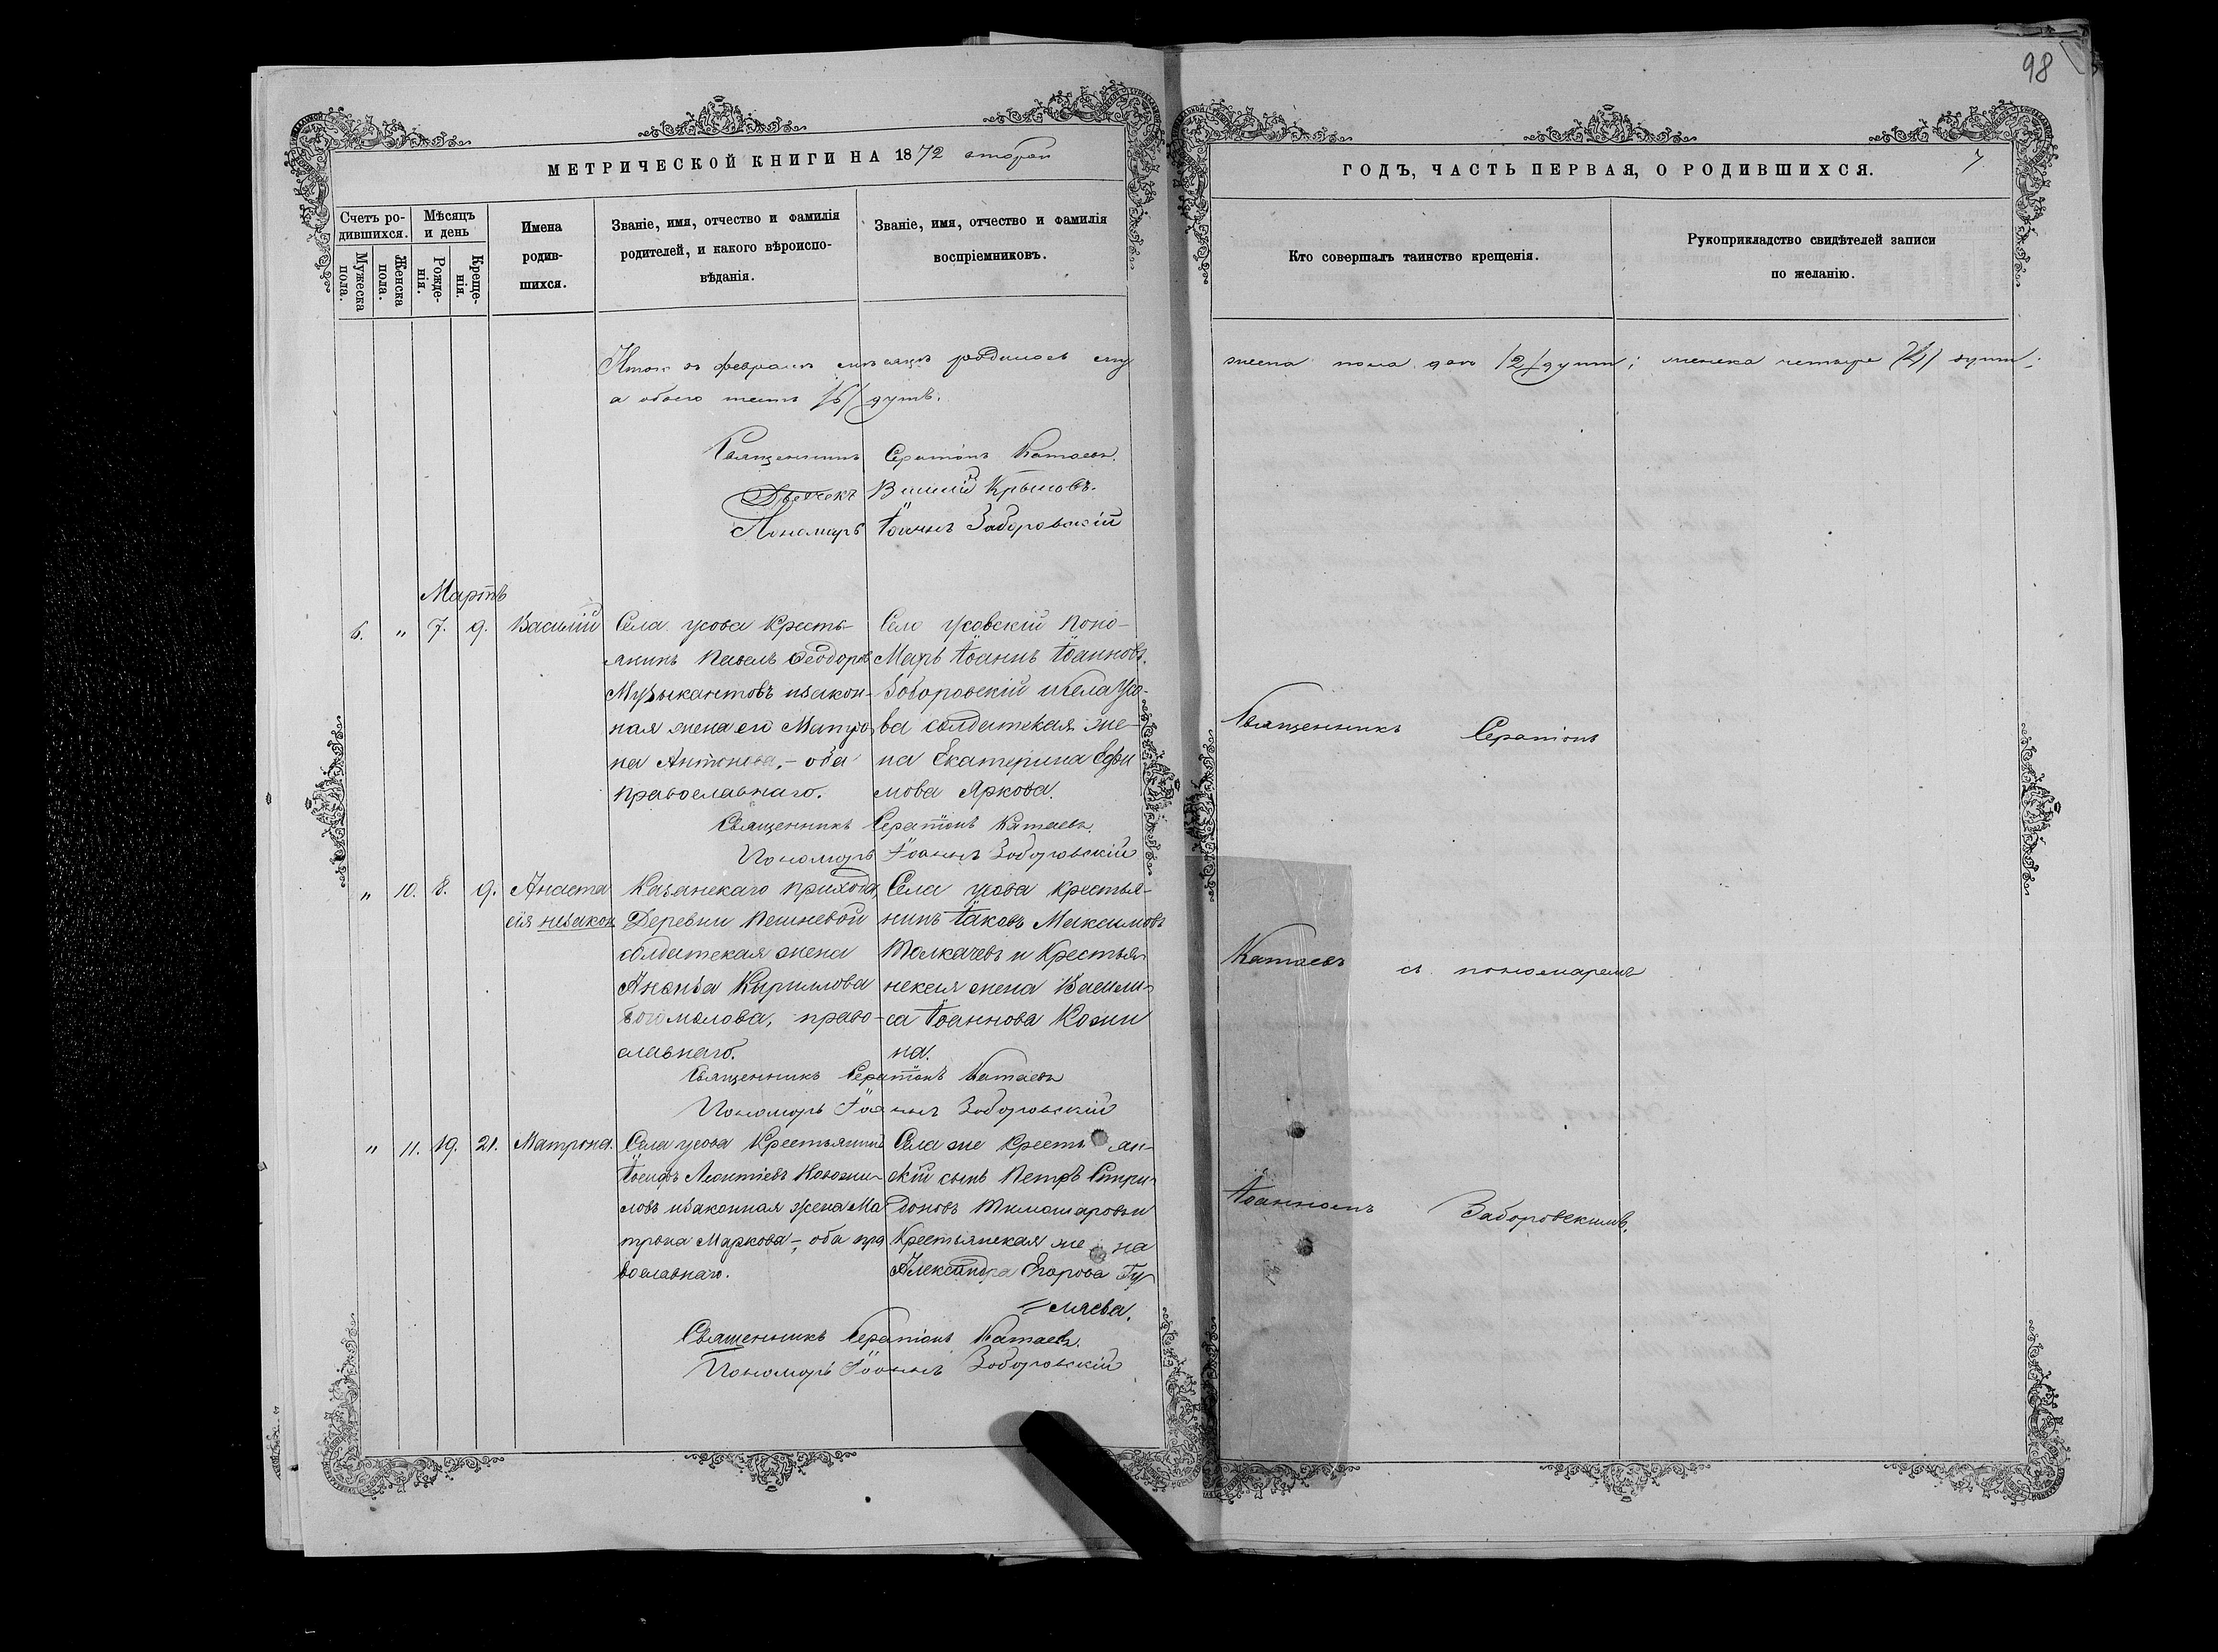 98
МЕТРИЧЕСКОЙ КНИГИ НА 1872 вторый
ГОДЪ, ЧАСТЬ ПЕРВАЯ, О РОДИВШИХСЯ. 7
Счетъ ро-
дившихся.
Мужеска
пола.
Женска
пола.
Мѣсяцъ
и день
Рожде-
нія.
Креще-
нія.
Имена
родив-
шихся.
Званіе, имя, отчество и фамилія
родителей, и какого вѣроиспо-
вѣданія.
Званіе, имя, отчество и фамилія
воспріемниковъ.
Кто совершалъ таинство крещенія.
Рукоприкладство свидѣтелей записи
по желанію.
Итого въ февралѣ мѣсяцѣ родилось му
жеска пола два /2/ душъ; женска четыре /4/ душъ;
а обоего шесть /6/ душъ.
Священникъ Серапіонъ Катаевъ.
Дьячекъ Василій Крыловъ.
Пономарь Іоаннъ Заборовскій
Мартъ
6. " 7. 9. Василій
Села Усова Кресть-
янинъ Павелъ Ѳеодоровъ
Музыкантовъ изакон-
ная жена его Матро
на Антонова, - оба
православнаго.
Село Усовскій Поно-
марь Іоаннъ Іоанновъ
Заборовскій и Села Усо-
ва солдатская же-
на Екатерина Ефи
мова Яркова.
Священникъ Серапіонъ Катаевъ.
Пономарь Іоаннъ Заборовскій
" 10. 8. 9. Анаста
сія незакон.
Казанскаго прихода,
Деревни Пешневой
солдатская жена
Ананья Кириллова
Богомолова, право-
славнаго.
Села Усова крестья-
нинъ Іаковъ Максимовъ
Толкачевъ и Крестья-
нская жена Васили-
са Іоаннова Кожи
на.
Священникъ Серапіонъ Катаевъ
Пономарь Іоаннъ Заборовскій
" 11. 19. 21. Матрона.
Села Усова Крестьянинъ
Іосифъ Леонтіевъ Новожи-
ловъ изаконная жена Ма
трона Маркова -, оба пра
вославнаго.
Села же Крестьян-
скій сынъ Петръ Спири-
доновъ Тимошаровъ и
Крестьянская жена
Александра Егорова Гу-
=ляева.
Священникъ Серапіонъ Катаевъ.
Пономарь Іоаннъ Заборовскій
Священникъ Серапіонъ
Катаевъ съ пономаремъ
Іоанномъ Заборовскимъ.